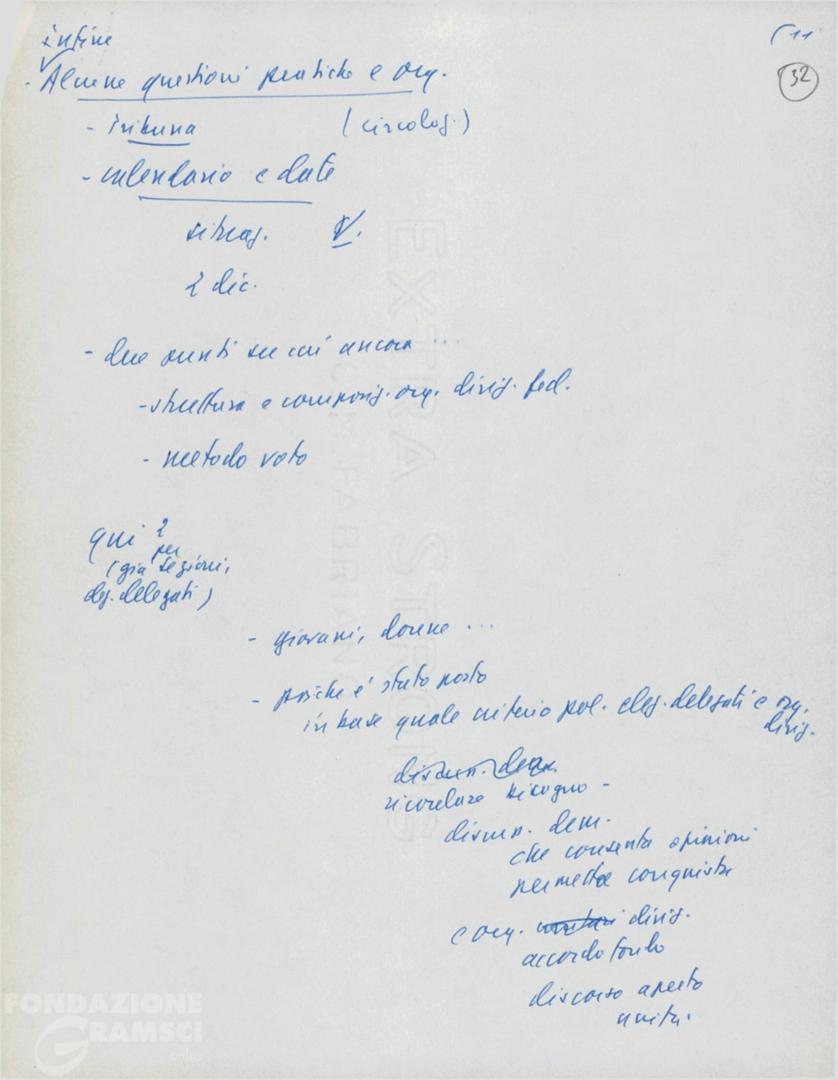 infine
(11
32
- Alcune questioni pratiche e org.
- tribuna (circolaz.)
- calendario e date
V.
2 dic.
- due punti su cui ancora ...
- struttura e composiz. org. dirig. fed.
- metodo voto
qui 2
per
(già sezioni,
deg. delegati)
- giovani, donne ...
- poiché è stato posto
in base quale criterio pol. eleg. delegati e org.
dirig.
discuss. dem.
ricordare bisogno -
discuss. dem.
che consenta opinioni
permetta conquista
e org. dirig.
accordo fondo
discorso aperto
unità.
EXTRA STRONG
C.M. FABRIANO
FONDAZIONE
GRAMSCI
onlus